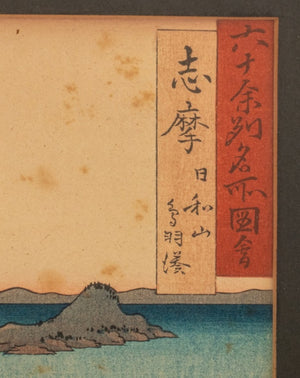 六十余州名所図会
志摩
日和山
鳥羽湊